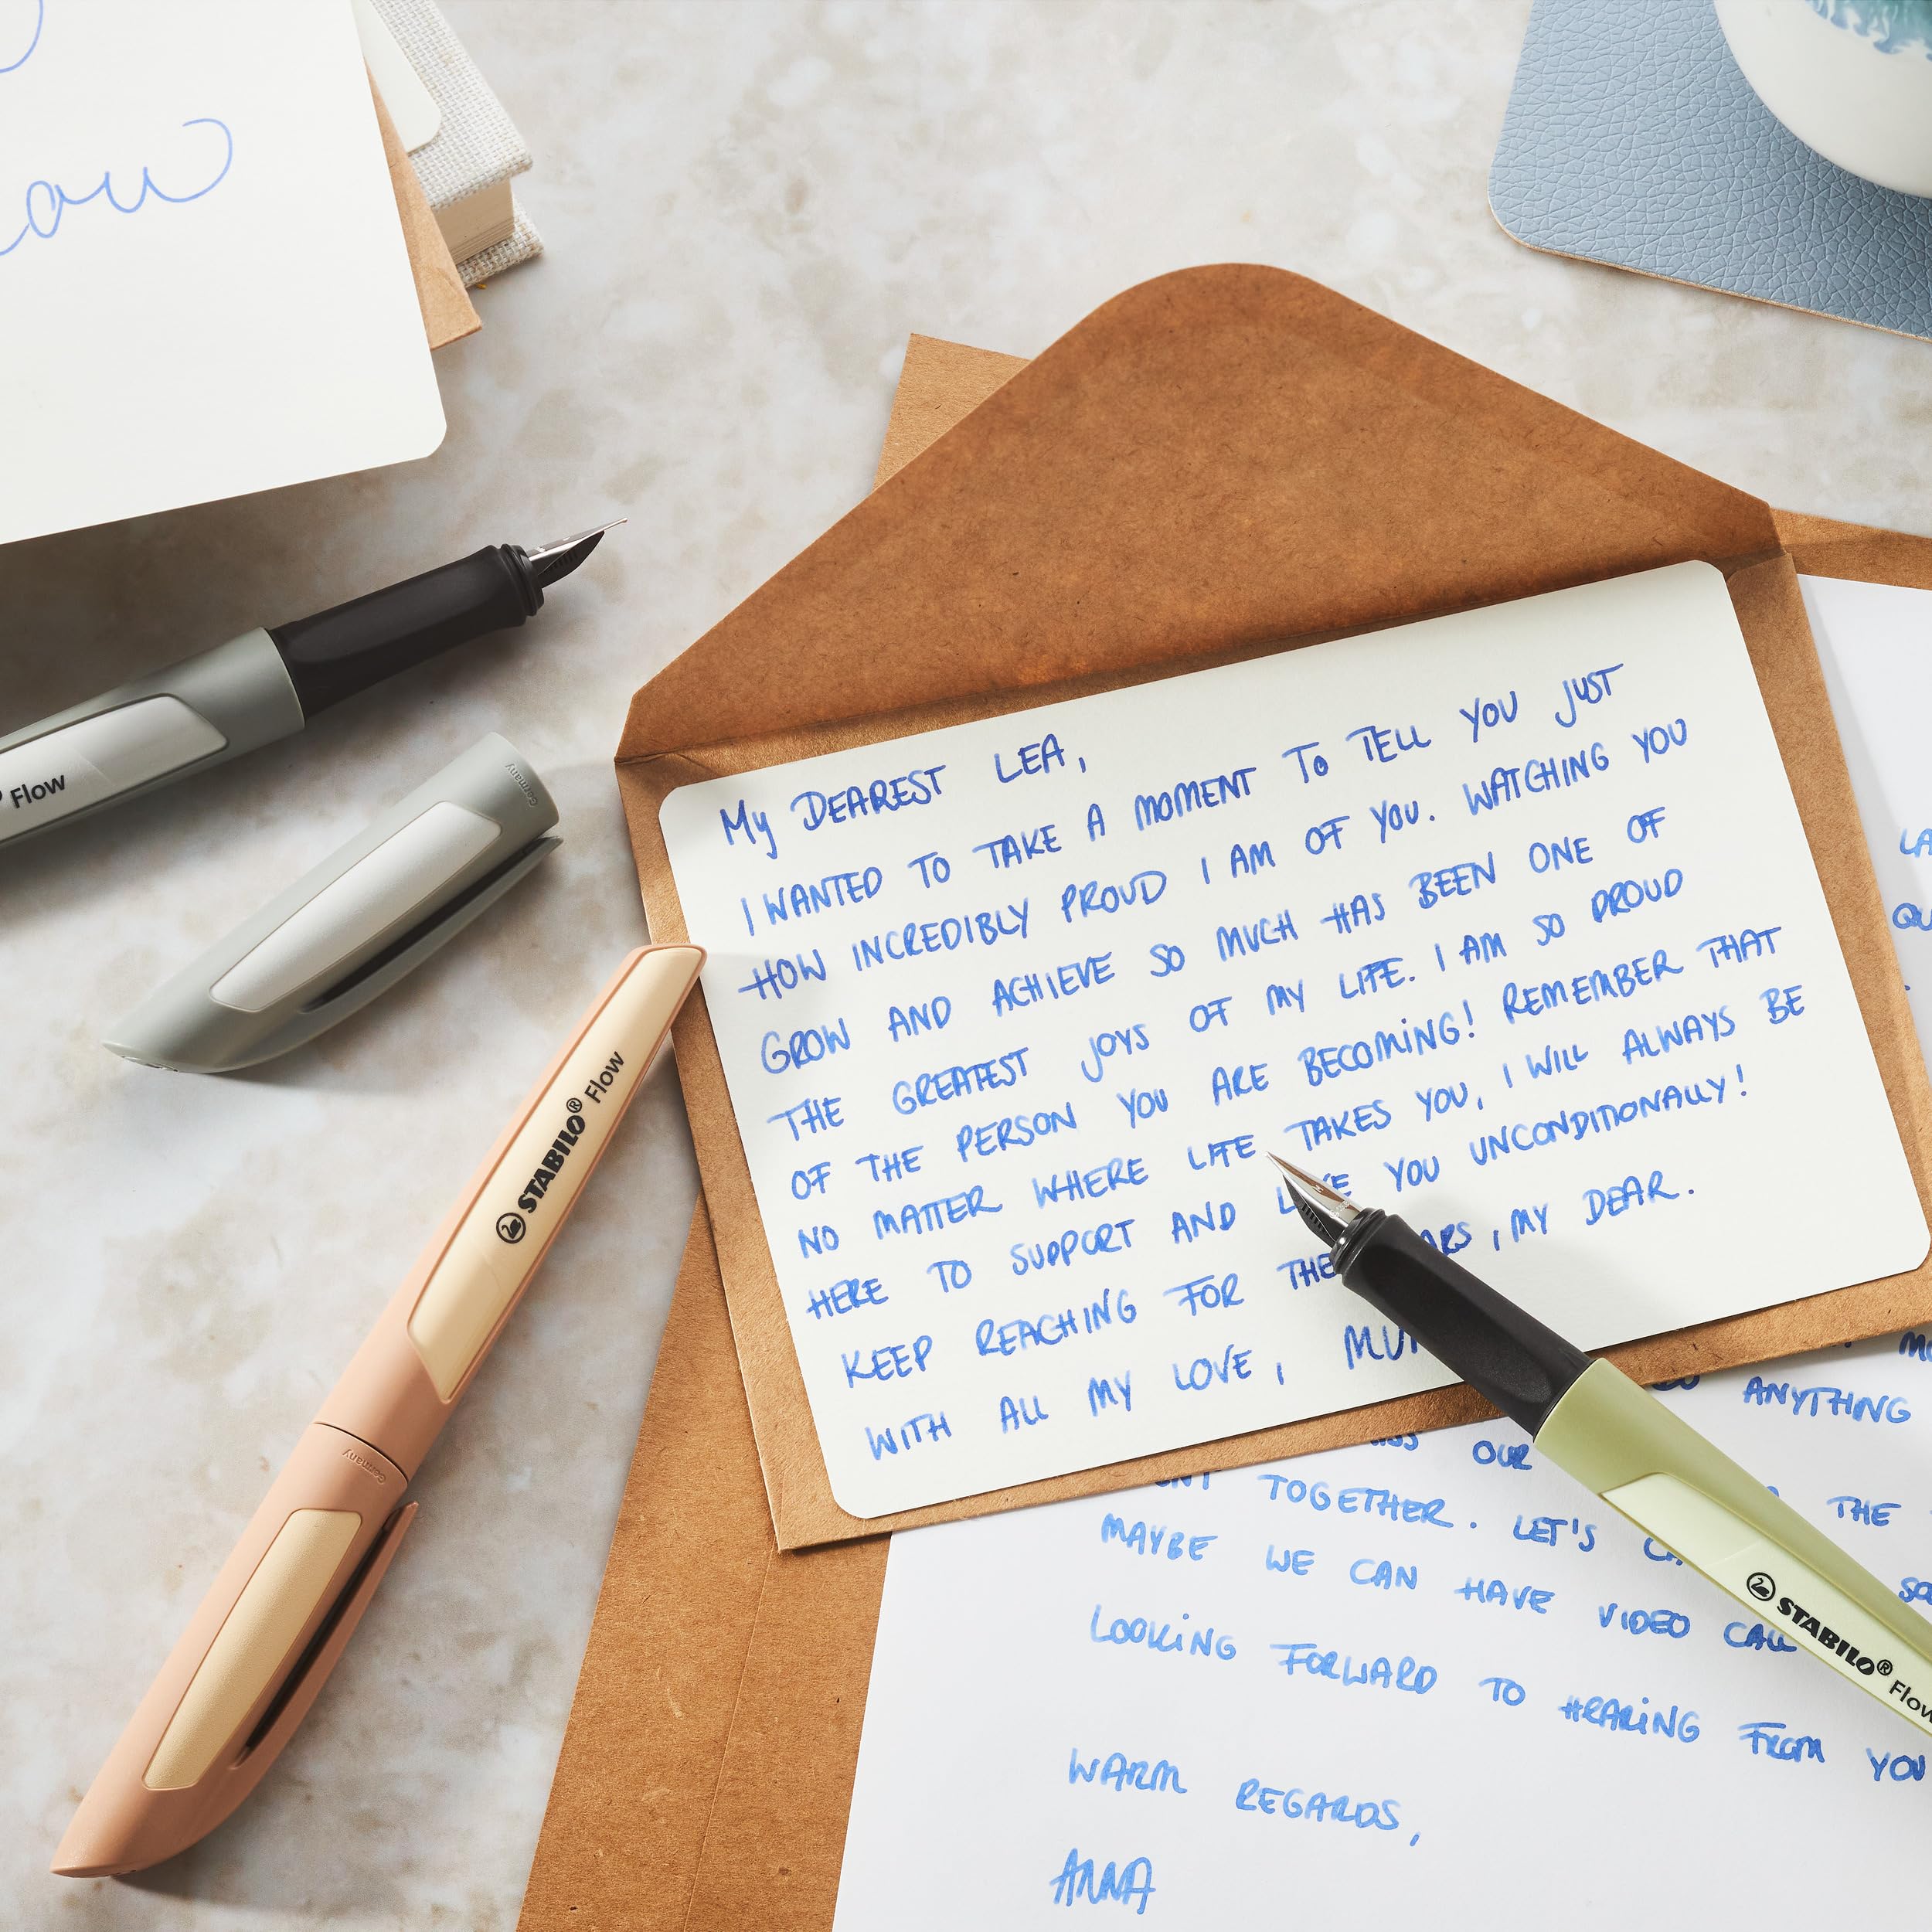 My DEAREST LEA,
I WANTED TO TAKE A MOMENT TO TELL YOU JUST
HOW INCREDIBLY PROUD I AM OF YOU. WATCHING YOU
GROW AND ACHIEVE SO MUCH HAS BEEN ONE OF
THE GREATEST JOYS OF MY LIFE. I AM SO PROUD
OF THE PERSON YOU ARE BECOMING! REMEMBER THAT
NO MATTER WHERE LIFE TAKES YOU, I WILL ALWAYS BE
HERE TO SUPPORT AND YOU UNCONDITIONALLY!
KEEP REACHING FOR , MY DEAR.
WITH ALL MY LOVE,
Flow
Germany
STABILO® Flow
Germany
STABILO® Flow
ANYTHING
OUR THE
TOGETHER. LET'S
MAYBE WE CAN HAVE VIDEO CALL
LOOKING FORWARD TO HEARING FROM YOU
WARM REGARDS,
ANNA